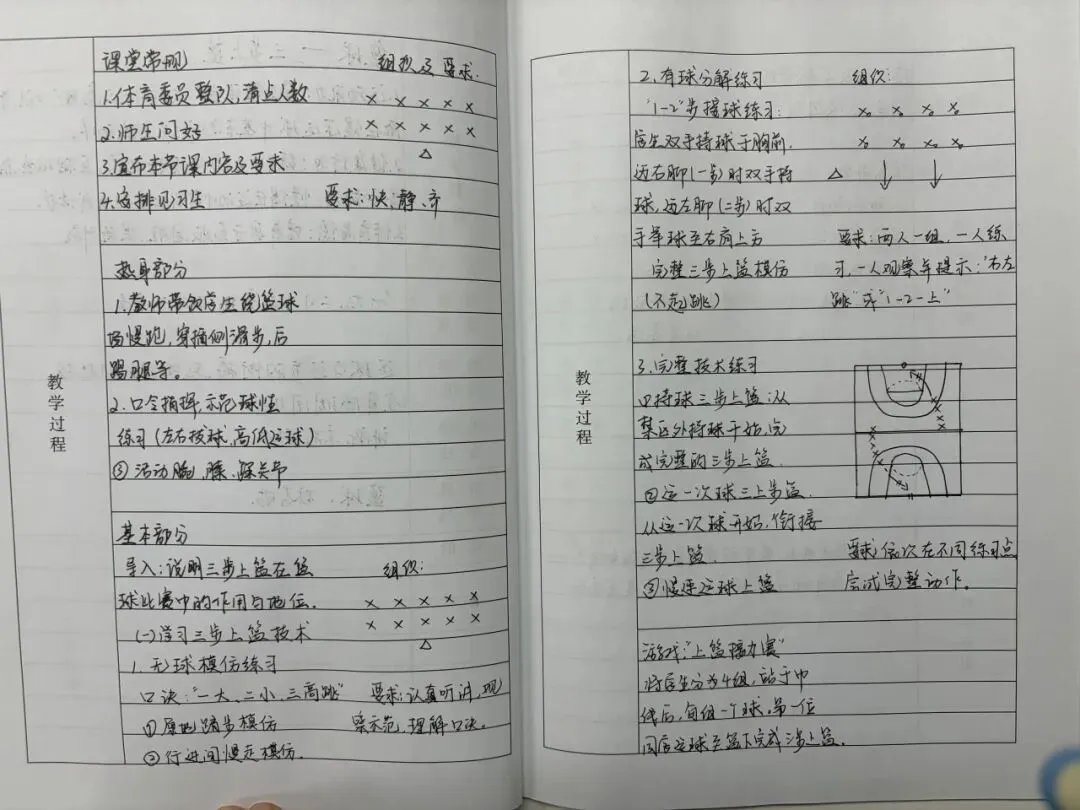 教学过程
课堂常规 组织及要求.
1.体育委员整队,清点人数 × × × × ×
2.师生问好 × × × × ×
3.宣布本节课内容及要求 △
4.安排见习生 要求:快、静、齐
热身部分
1.教师带领学生绕篮球
场慢跑,穿插侧滑步,后
踢腿等。
2.口令指挥,示范球性
练习(左右拨球,高低运球)
③活动腕、膝、踝关节
基本部分
导入:说明三步上篮在篮 组织:
球比赛中的作用与地位. × × × × ×
(一)学习三步上篮技术 × × × × ×
△
1.无球模仿练习
口诀:"一大、二小、三高跳" 要求:认真听讲,观
①原地踏步模仿 察示范,理解口诀。
②行进间慢走模仿.
教学过程
2.有球分解练习 组织:
"1-2"步接球练习:
学生双手持球于胸前.
迈右脚(一步)时双手持 △
球,迈左脚(二步)时双
手举球至右肩上方 要求:两人一组,一人练
完整三步上篮模仿 习,一人观察并提示:"右左
(不起跳) 跳"或"1-2-上"
3.完整技术练习
①持球三步上篮:从
禁区外持球开始,完
成完整的三步上篮.
②运一次球三上步篮.
从运一次球开始,衔接
三步上篮. 要求:依次在不同练习点
③慢速运球上篮 尝试完整动作。
游戏:"上篮接力赛"
将学生分为4组,站于中
线后,每组一个球,第一位
同学运球至篮下完成三步上篮.